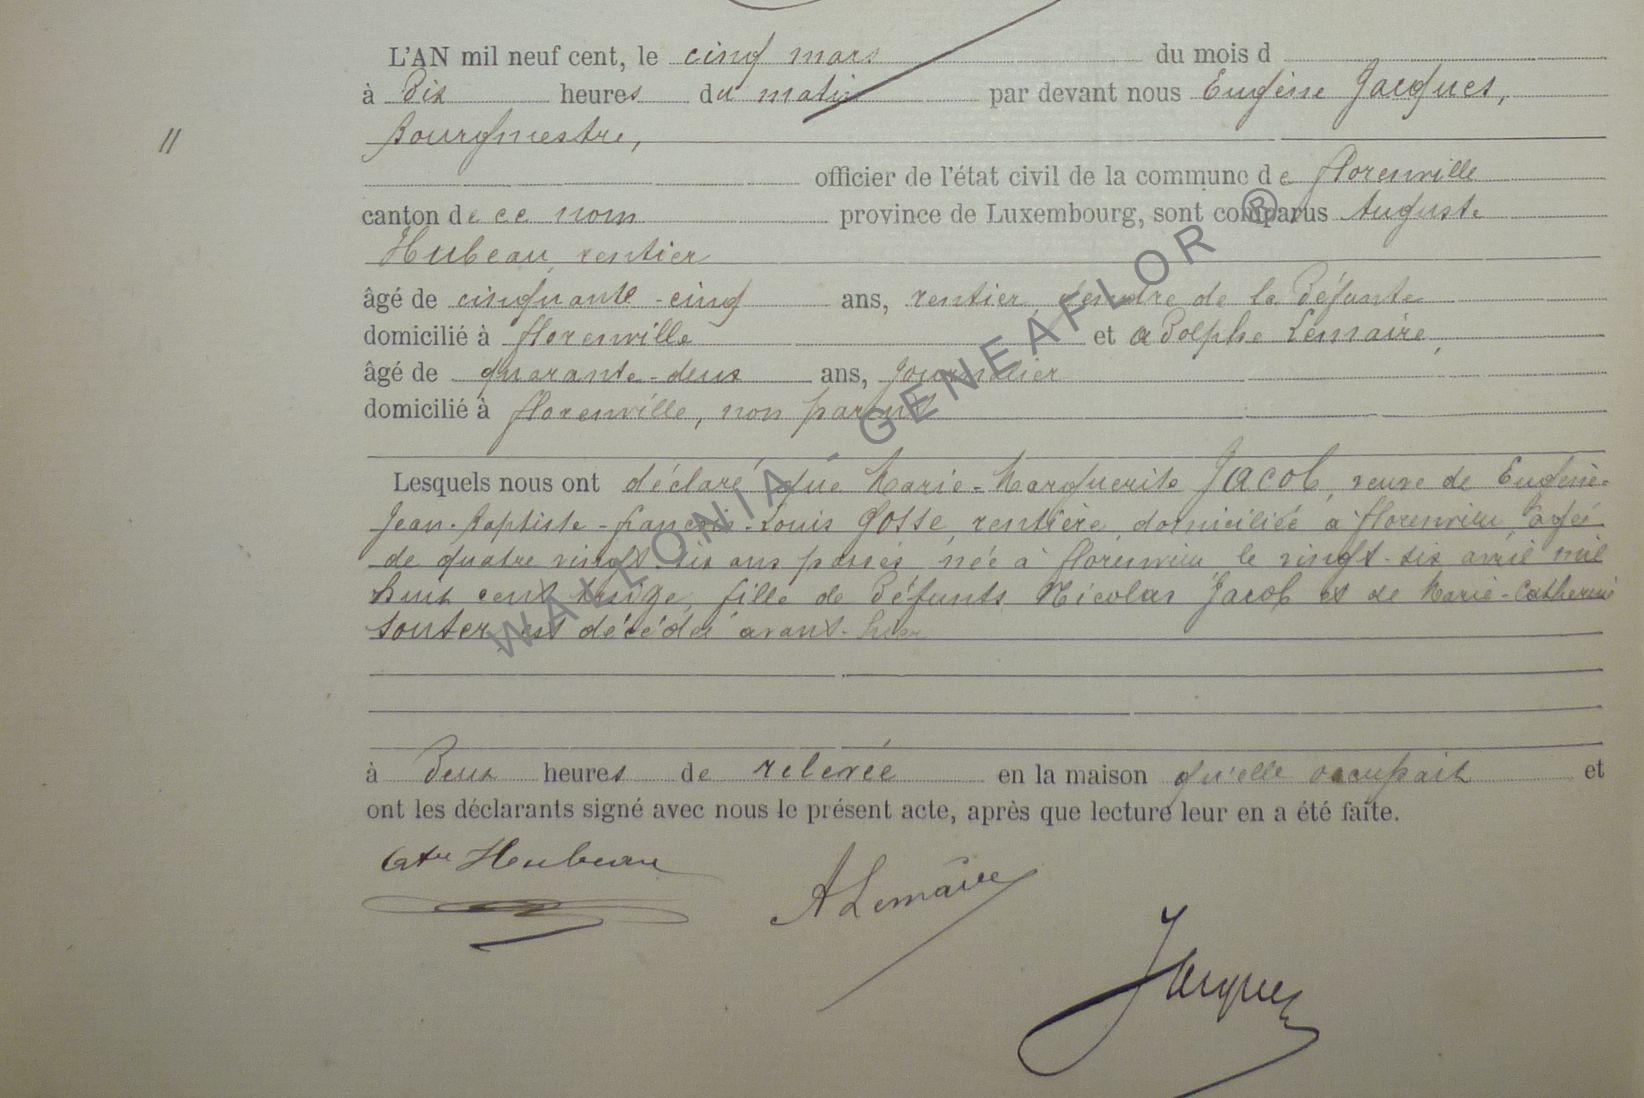 L'AN mil neuf cent, le cinq mars du mois d
à Dix heures du matin par devant nous Eugène Jacques,
Bourgmestre,
11
officier de l'état civil de la commune de florenville
canton de ce nom province de Luxembourg, sont comparus Auguste
Hubeau rentier
âgé de cinquante-cinq ans, rentier, gendre de la Défunte
domicilié à florenville et adolphe Lemaire,
âgé de quarante-deux ans, journalier
domicilié à florenville, non parent
Lesquels nous ont déclaré que Marie-Marguerite Jacob, veuve de Eugène-
Jean-Baptiste-françois-Louis Gosse, rentière, domiciliée à florenville, âgée
de quatre vingt-six ans passés, née à florenville le vingt-six avril mil
huit cent treize, fille de Défunts Nicolas Jacob et de Marie-Catherine
Souter, est décédée avant-hier
à Deux heures de relevée en la maison qu'elle occupait et
ont les déclarants signé avec nous le présent acte, après que lecture leur en a été faite.
Hubeau
A Lemaire
Jacques
WALLONIA - GENEAFLOR ®